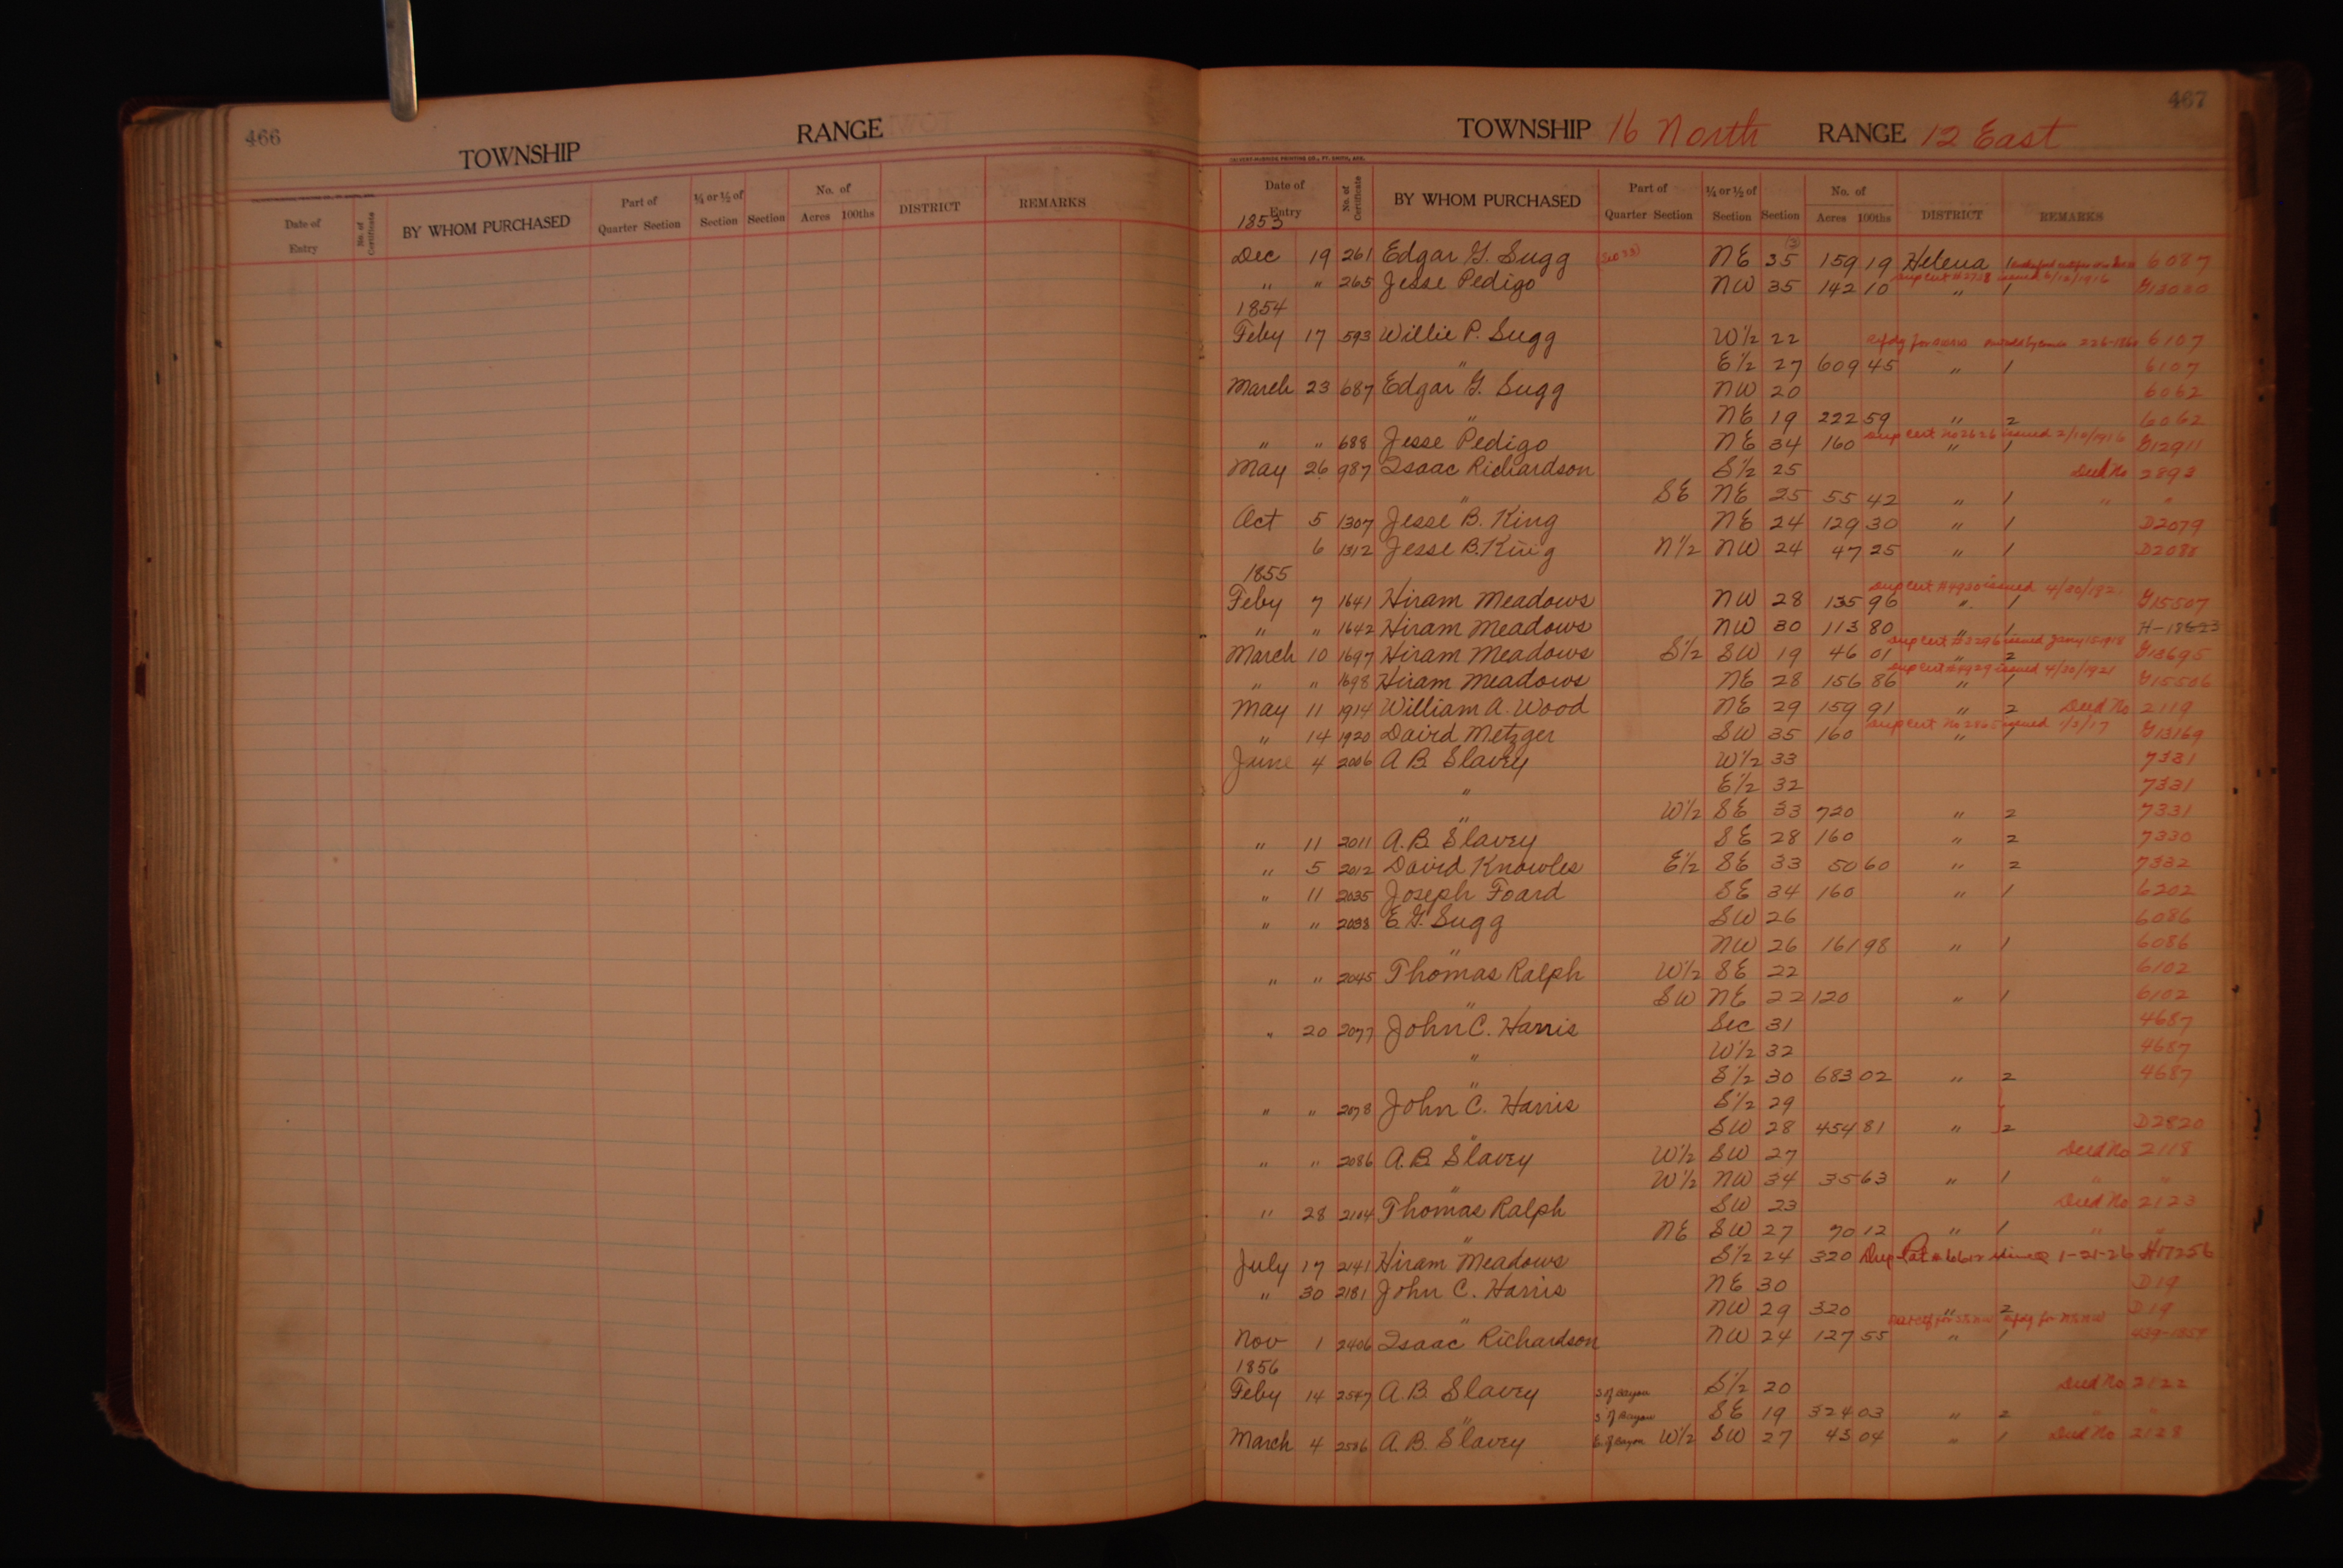 466
TOWNSHIP RANGE
Date of Entry No. of Certificate BY WHOM PURCHASED Part of Quarter Section ¼ or ½ of Section Section No. of Acres 100ths DISTRICT REMARKS
467
TOWNSHIP 16 North RANGE 12 East
Date of Entry No. of Certificate BY WHOM PURCHASED Part of Quarter Section ¼ or ½ of Section Section No. of Acres 100ths DISTRICT REMARKS
1853
Dec 19 261 Edgar G. Sugg NE 35 159 19 Helena 1 6087
" " 265 Jesse Pedigo NW 35 142 10 " 1
1854
Feby 17 593 Willie P. Sugg W½ 22 6107
" E½ 27 609 45 " 1 6107
March 23 687 Edgar G. Sugg NW 20 6062
" NE 19 222 59 " 2 6062
Dup Cert No 2626 issued 2/10/1916
" " 688 Jesse Pedigo NE 34 160 " 1 G12911
May 26 987 Isaac Richardson S½ 25 Deed No 2893
" SE NE 25 55 42 " 1 " "
Oct 5 1307 Jesse B. King NE 24 129 30 " 1 D2079
6 1312 Jesse B. King N½ NW 24 47 25 " 1 D2088
1855
Dup Cert #4930 issued
Feby 7 1641 Hiram Meadows NW 28 135 96 " 1 G15507
" " 1642 Hiram Meadows NW 30 113 80 " 1
Dup Cert #3296 issued Jany 15 1918
March 10 1697 Hiram Meadows S½ SW 19 46 01 " 2 G13695
Dup Cert #4929 issued 4/30/1921
" " 1698 Hiram Meadows NE 28 156 86 " 1 G15506
May 11 1914 William A. Wood NE 29 159 91 " 2 Deed No 2119
Dup Cert No 2865 issued 1/3/17
" 14 1920 David Metzger SW 35 160 " 1 G13169
June 4 2006 A B. Slavey W½ 33 7331
" E½ 32 7331
" W½ SE 33 720 " 2 7331
" 11 2011 A. B. Slavey SE 28 160 " 2 7330
" 5 2012 David Knowles E½ SE 33 50 60 " 2 7332
" 11 2035 Joseph Foard SE 34 160 " 1 6202
" " 2038 E. G. Sugg SW 26 6086
" NW 26 161 98 " 1 6086
" " 2045 Thomas Ralph W½ SE 22 6102
" SW NE 22 120 " 1 6102
" 20 2077 John C. Harris Sec 31 4687
" W½ 32 4687
" S½ 30 683 02 " 2 4687
" " 2078 John C. Harris S½ 29
" SW 28 454 81 " 2 D2820
" " 2086 A. B. Slavey W½ SW 27 Deed No 2118
" W½ NW 34 35 63 " 1 " "
" 28 2104 Thomas Ralph SW 23 Deed No 2123
" NE SW 27 70 12 " 1 " "
July 17 2141 Hiram Meadows S½ 24 320 1-21-26 H17256
" 30 2181 John C. Harris NE 30 D19
" NW 29 320 " 2 D19
Nov 1 2406 Isaac Richardson NW 24 127 55 " 1
1856
Feby 14 2547 A. B. Slavey S of Bayou S½ 20 Deed No 2122
" S of Bayou SE 19 324 03 " 2 " "
March 4 2586 A. B. Slavey E. of Bayou W½ SW 27 43 04 " 1 Deed No 2128